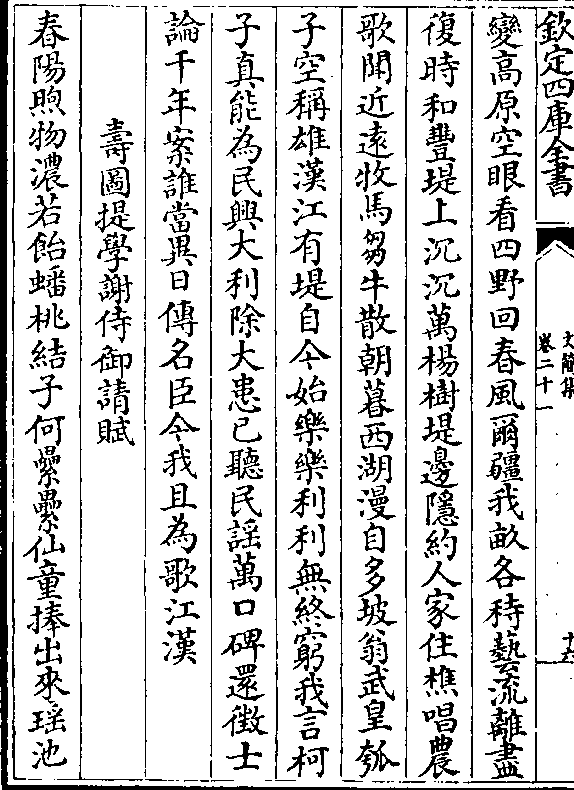 欽定四庫全書
文簡集
卷二十一
十六
變高原空眼看四野回春風爾疆我畝各種藝流離盡
復時和豐堤上沉沉萬楊樹堤邊隱約人家住樵唱農
歌聞近遠牧馬芻牛散朝暮西湖漫自多坡翁武皇瓠
子空稱雄漢江有堤自今始樂樂利利無終窮我言柯
子真能為民興大利除大患已聽民謡萬口碑還徴士
論千年案誰當異日傳名臣今我且為歌江漢
壽圖提學謝侍御請賦
春陽煦物濃若飴蟠桃結子何纍纍仙童捧出來瑶池